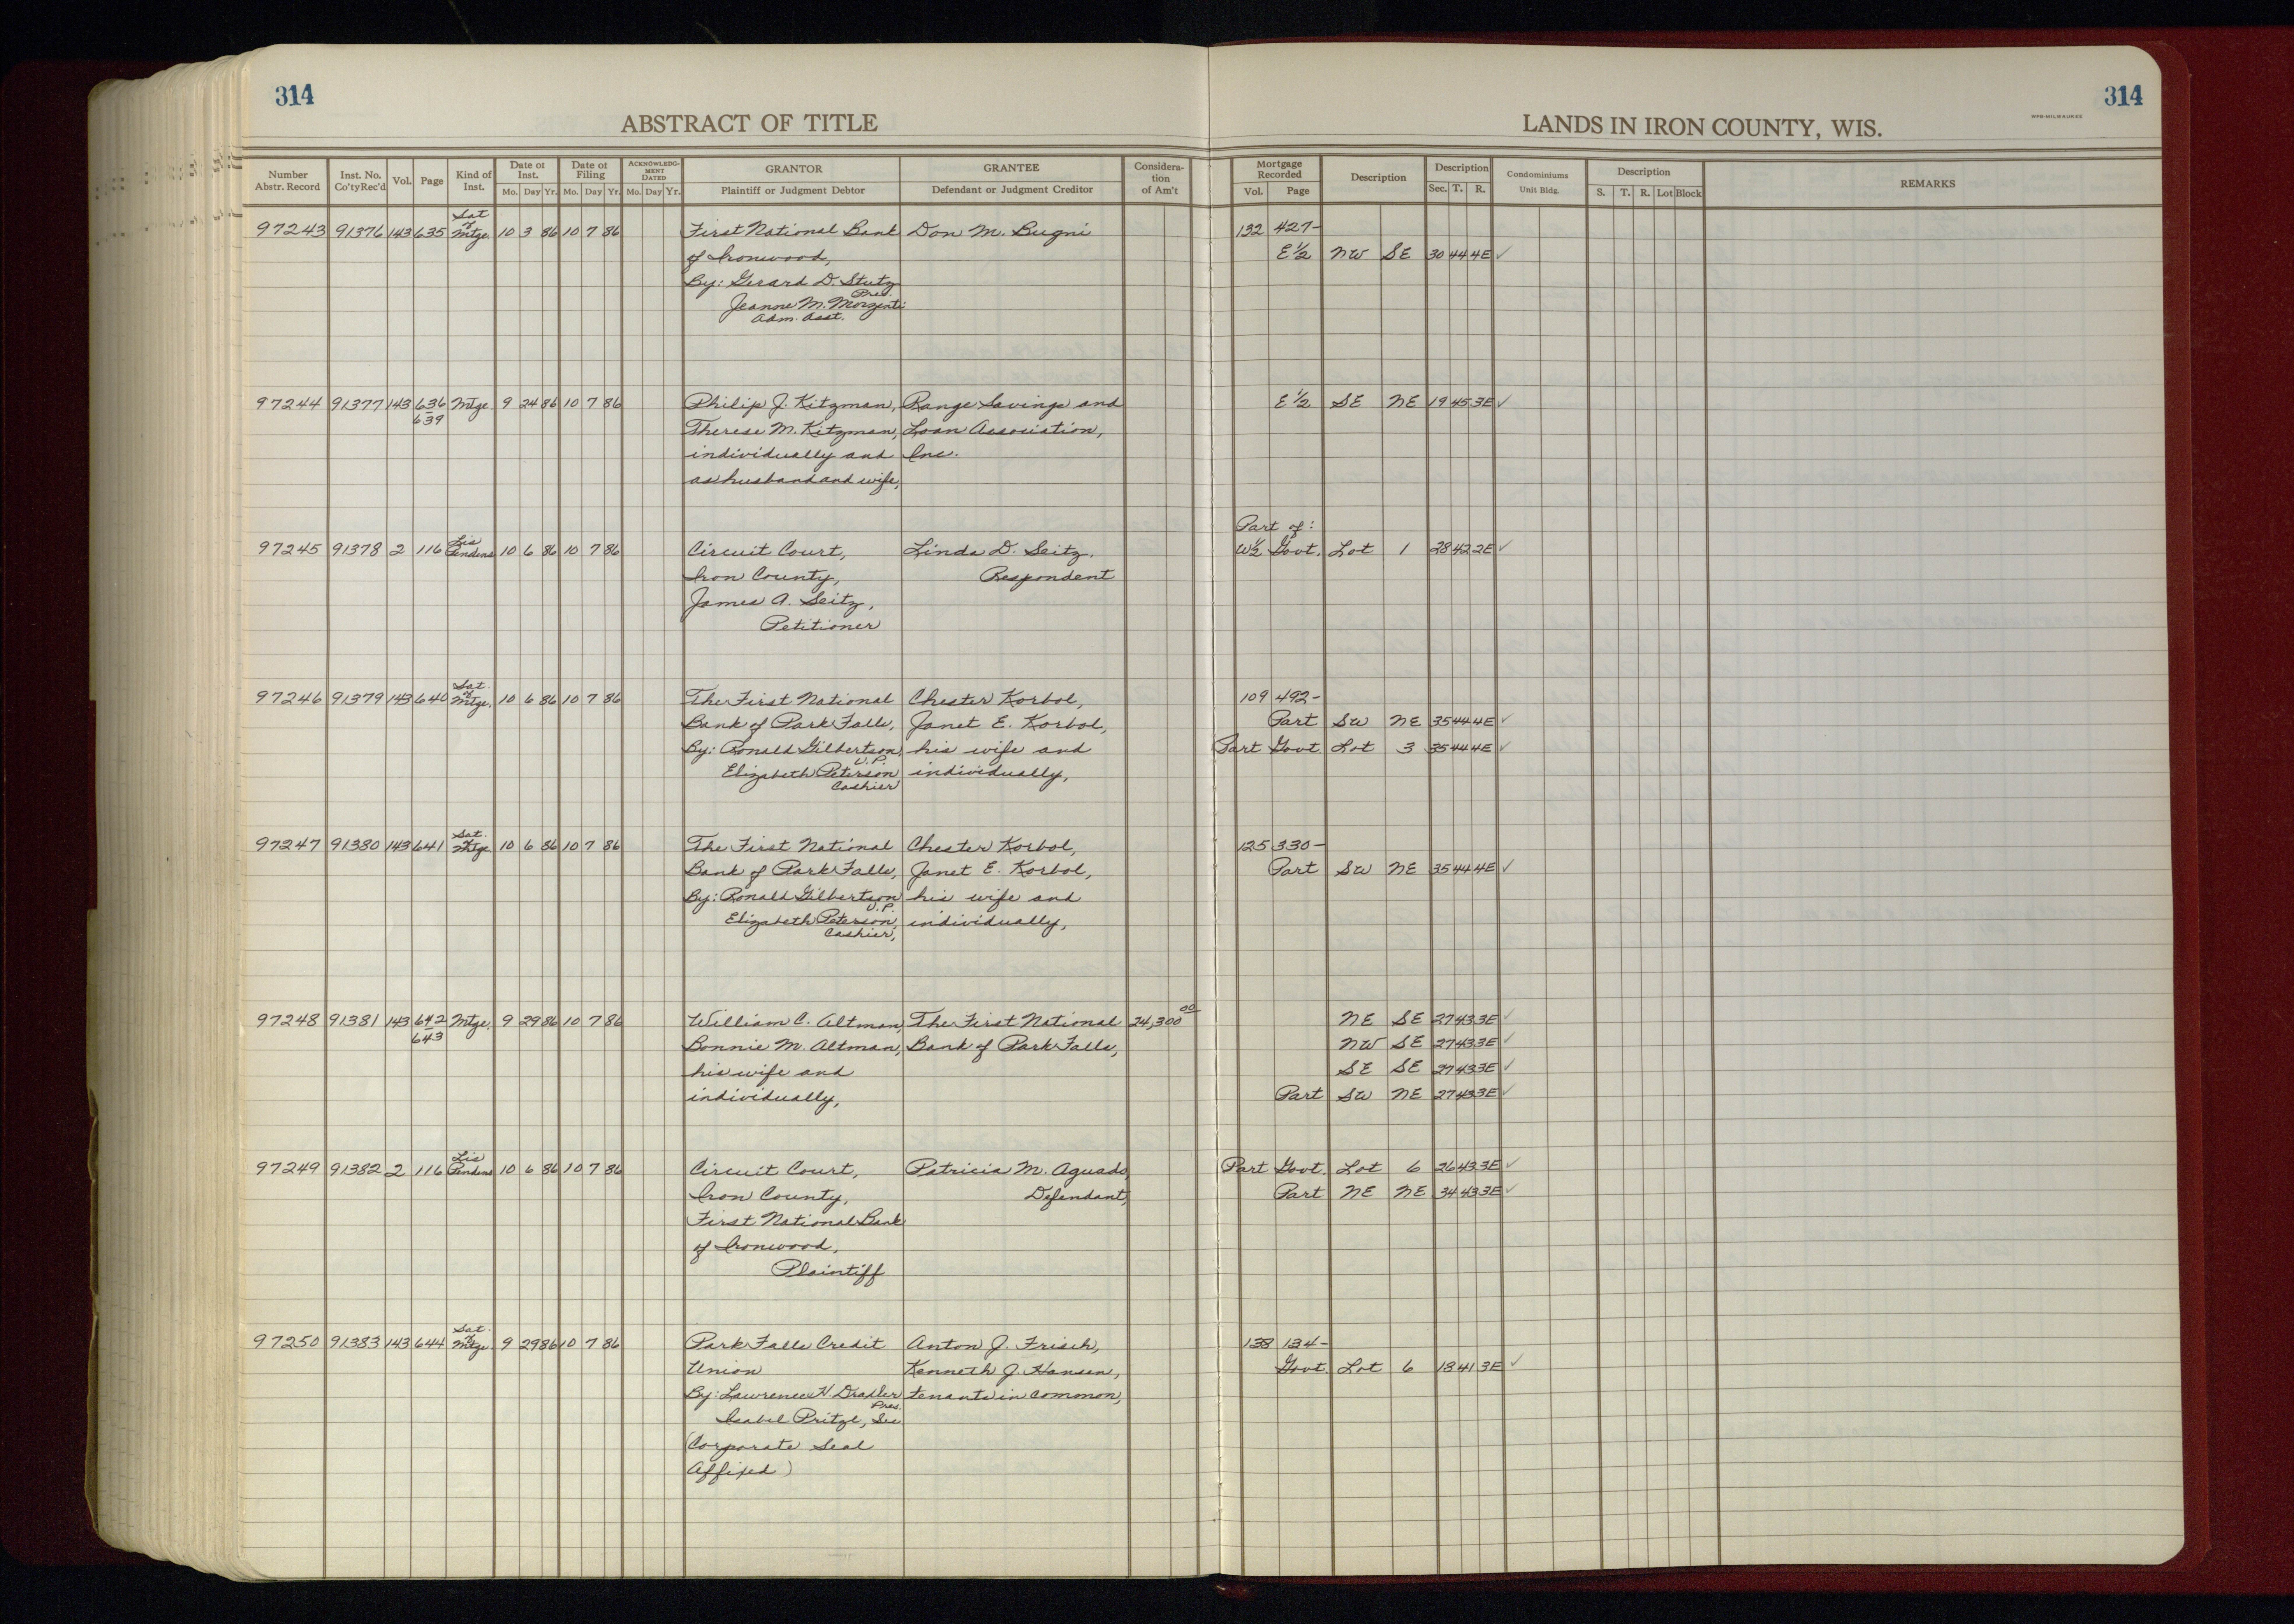 314
314
ABSTRACT OF TITLE
LANDS IN IRON COUNTY, WIS.
WPB-MILWAUKEE
Number Abstr. Record | Inst. No. Co'ty Rec'd | Vol. | Page | Kind of Inst. | Date of Inst. Mo. Day Yr. | Date of Filing Mo. Day Yr. | ACKNOWLEDGMENT DATED Mo. Day Yr. | GRANTOR Plaintiff or Judgment Debtor | GRANTEE Defendant or Judgment Creditor | Consideration of Am't | Mortgage Recorded Vol. Page | Description | Description Sec. T. R. | Condominiums Unit Bldg. | Description S. T. R. Lot Block | REMARKS
97243 91376 143 635 Sat of Mtge. 10 3 86 10 7 86 First National Bank Don M. Bugni 132 427-
of Ironwood, E 1/2 NW SE 30 44 4E ✓
By: Gerard D. Stutz
Pres.
Jeanne M. Morzenti
Adm. Asst.
97244 91377 143 636 Mtge 9 24 86 10 7 86 Philip J. Kitzman, Range Savings and E 1/2 SE NE 19 45 3E ✓
639
Therese M. Kitzman, Loan Association,
individually and Inc.
as husband and wife,
Part of:
97245 91378 2 116 Lis Pendens 10 6 86 10 7 86 Circuit Court, Linda D. Seitz, W 1/2 Govt. Lot 1 28 42 2E ✓
Iron County, Respondent
James A. Seitz,
Petitioner
97246 91379 143 640 Sat. of Mtge. 10 6 86 10 7 86 The First National Chester Korbol, 109 492-
Bank of Park Falls, Janet E. Korbol, Part SW NE 35 44 4E ✓
By: Ronald Gilbertson, his wife and Part Govt Lot 3 35 44 4E ✓
V.P.
Elizabeth Peterson individually,
Cashier
97247 91380 143 641 Sat. of Mtge 10 6 86 10 7 86 The First National Chester Korbol, 125 330-
Bank of Park Falls, Janet E. Korbol, Part SW NE 35 44 4E ✓
By: Ronald Gilbertson his wife and
V.P.
Elizabeth Peterson, individually,
Cashier,
97248 91381 143 642 Mtge. 9 29 86 10 7 86 William C. Altman, The First National 24,300 00 NE SE 27 43 3E ✓
643
Bonnie M. Altman, Bank of Park Falls, NW SE 27 43 3E ✓
his wife and SE SE 27 43 3E ✓
individually, Part SW NE 27 43 3E ✓
97249 91382 2 116 Lis Pendens 10 6 86 10 7 86 Circuit Court, Patricia M. Aguado, Part Govt. Lot 6 26 43 3E ✓
Iron County, Defendant, Part NE NE 34 43 3E ✓
First National Bank
of Ironwood,
Plaintiff
97250 91383 143 644 Sat. of Mtge. 9 29 86 10 7 86 Park Falls Credit Anton J. Frisch, 138 134-
Union Kenneth J. Hansen, Govt. Lot 6 18 41 3E ✓
By: Lawrence H. tenants in common,
Pres.
Isabel Pritzl, Sec
(Corporate Seal
Affixed)